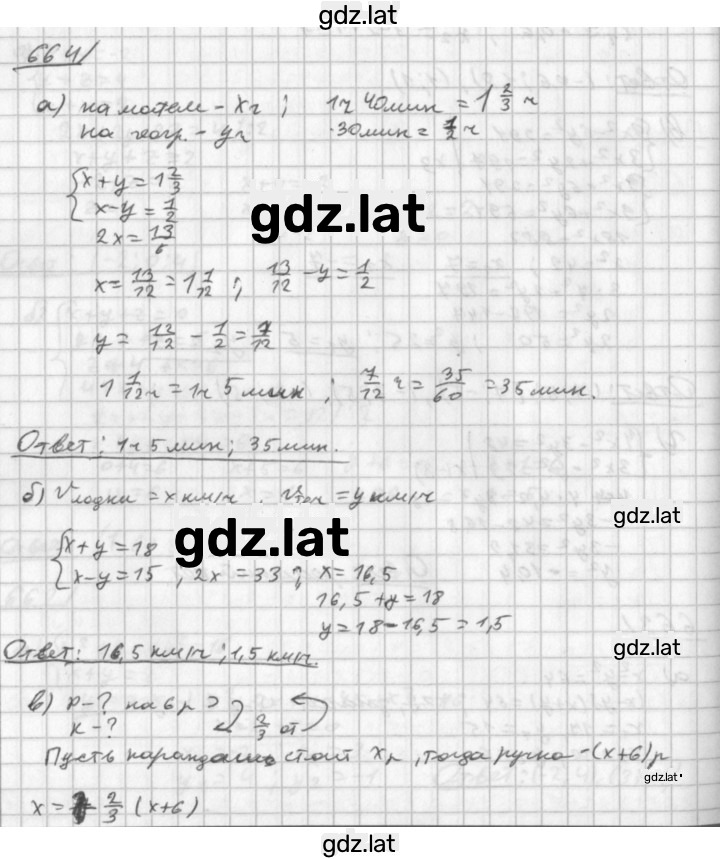 gdz.lat
664/
а) на матем – x ч ; 1ч 40мин = 1 2/3 ч
на геогр. – y ч 30мин = 1/2 ч
{ x + y = 1 2/3
x – y = 1/2
gdz.lat
2x = 13/6
x = 13/12 = 1 1/12 ; 13/12 – y = 1/2
y = 13/12 – 1/2 = 7/12
1 1/12 ч = 1ч 5 мин ; 7/12 ч = 35/60 = 35 мин.
Ответ: 1ч 5 мин; 35 мин.
б) Vлодки = x км/ч . Vтеч = y км/ч
gdz.lat
gdz.lat
{ x + y = 18
x – y = 15 ; 2x = 33 ; x = 16,5
16,5 + y = 18
y = 18 – 16,5 = 1,5
gdz.lat
Ответ: 16,5 км/ч ; 1,5 км/ч.
в) Р – ? на 6 р >
К – ? 2/3 от
Пусть карандаш стоит x р, тогда ручка – (x+6) р
gdz.lat
x = 2/3 (x+6)
gdz.lat